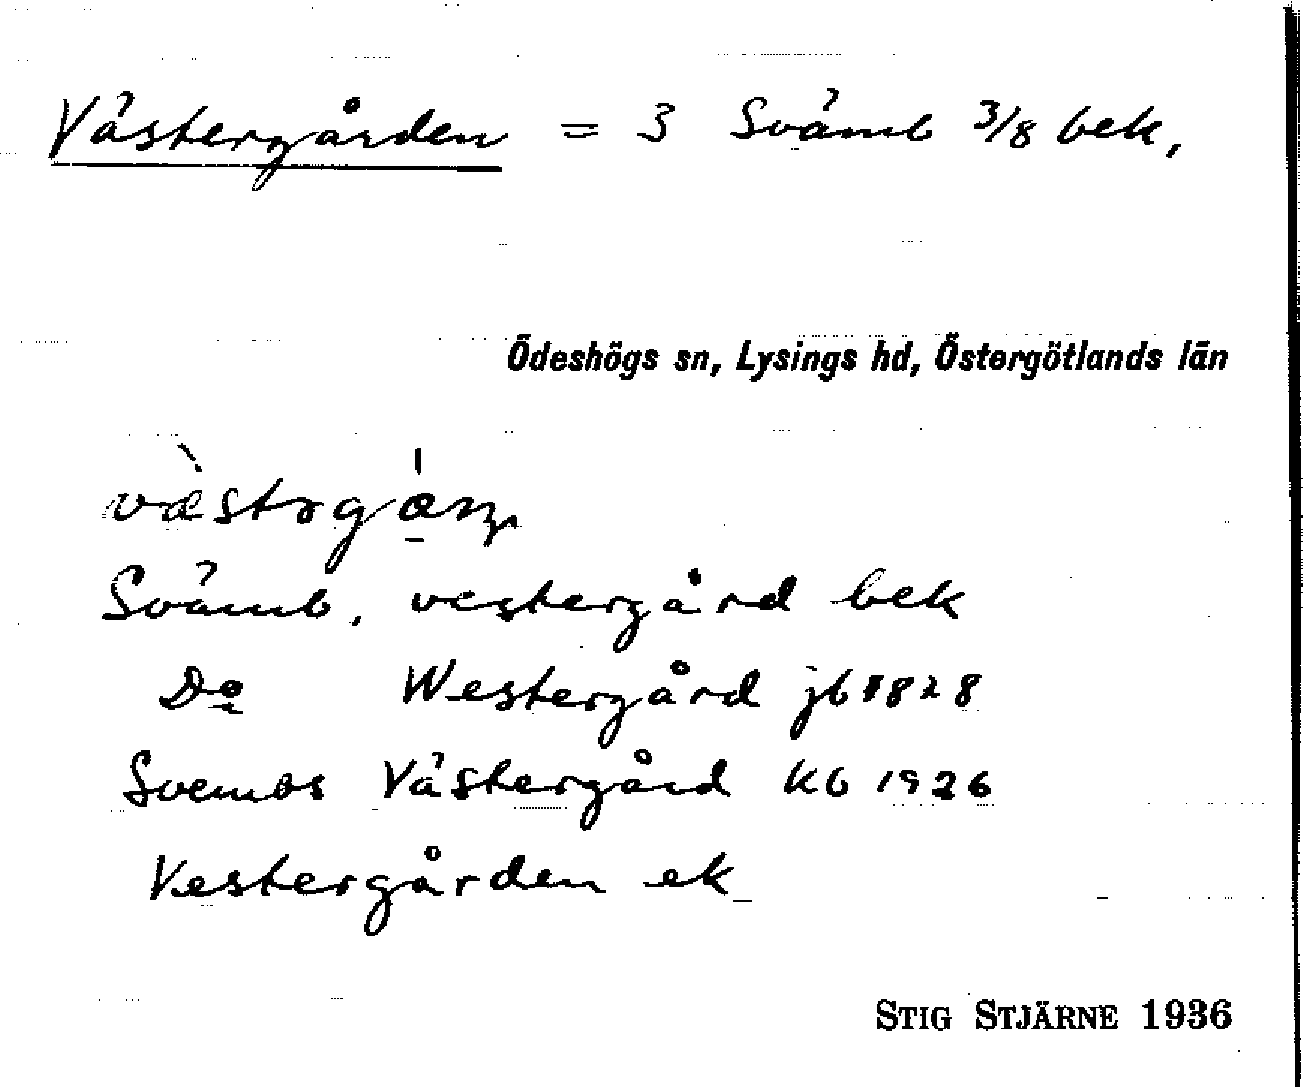 Västergården = 3 Svämb 3/8 bek,
Ödeshögs sn, Lysings hd, Östergötlands län
Svämb, vestergård bek
Do Westergård jb 1828
Svembs Västergård kb 1926
Vestergården ek
STIG STJÄRNE 1936